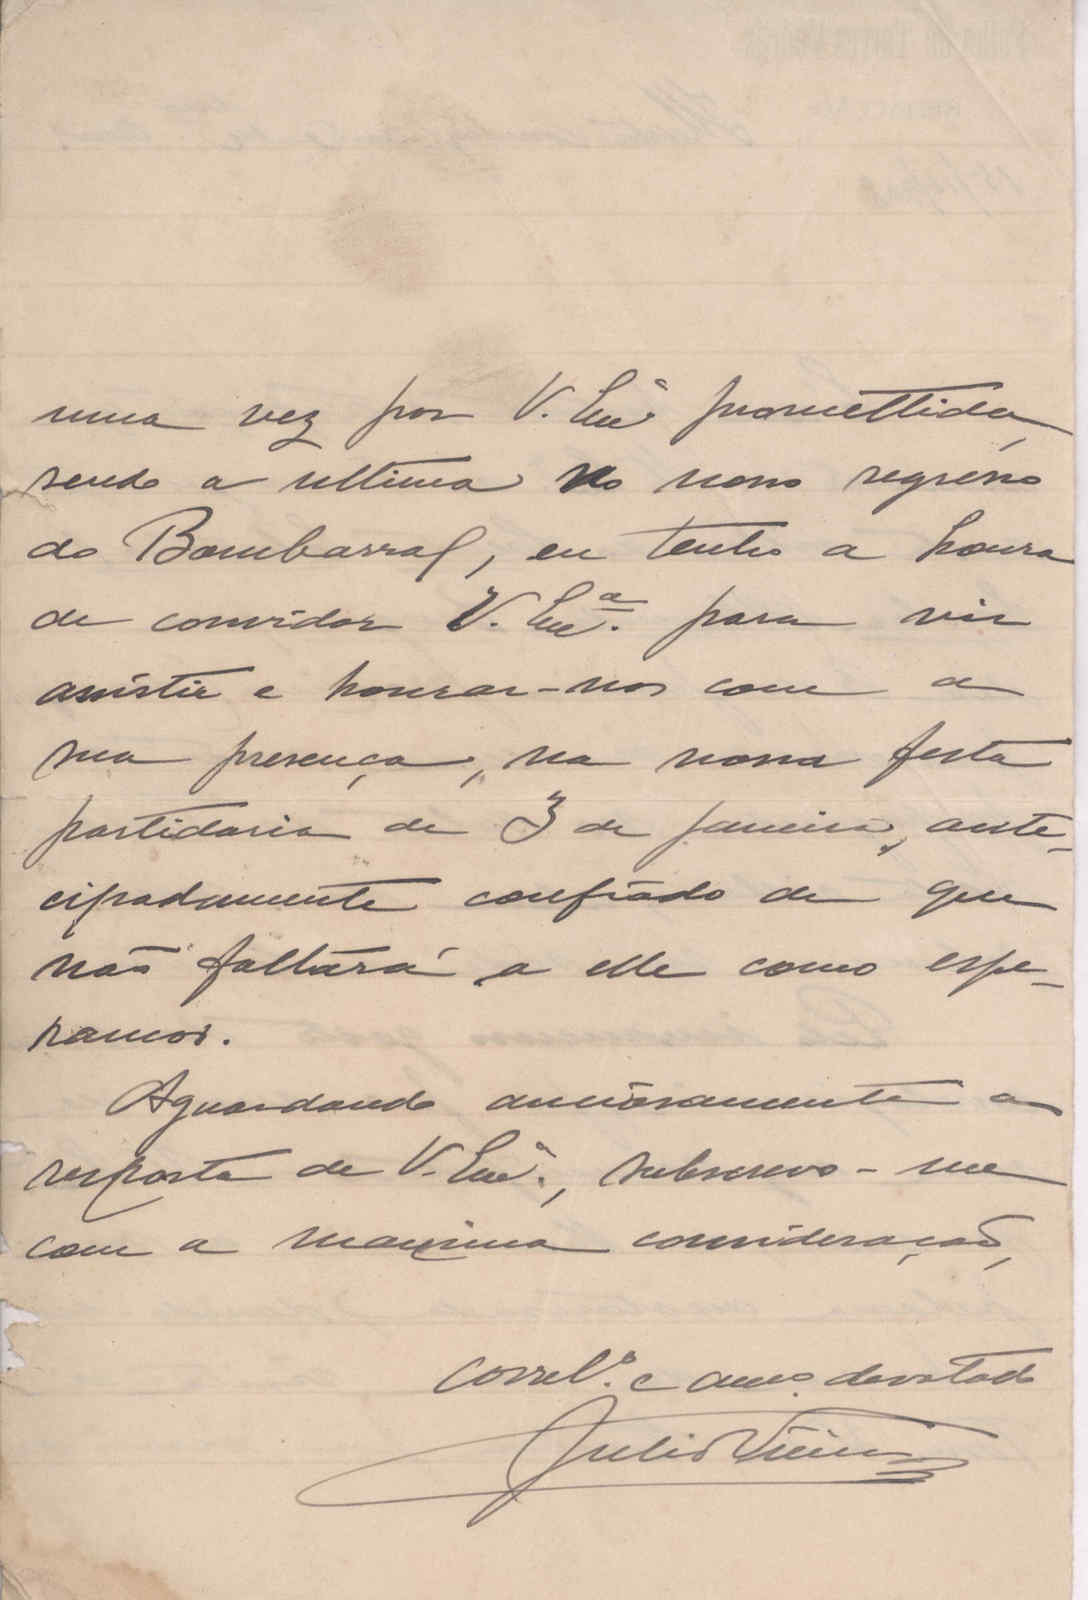 uma vez por V. Exª promettida,
sendo a ultima no nosso regresso
do Bombarral, eu tenho a honra
de convidar V. Exª. para vir
assistir e honrar-nos com a
sua presença, na nossa festa
partidaria de 3 de janeiro, ante-
cipadamente confiado de que
não faltará a elle como espe-
ramos.
Aguardando anciosamente a
resposta de V. Exª., subscrevo-me
com a maxima consideração,
correlº. e amº. devotado
Julio Vieira